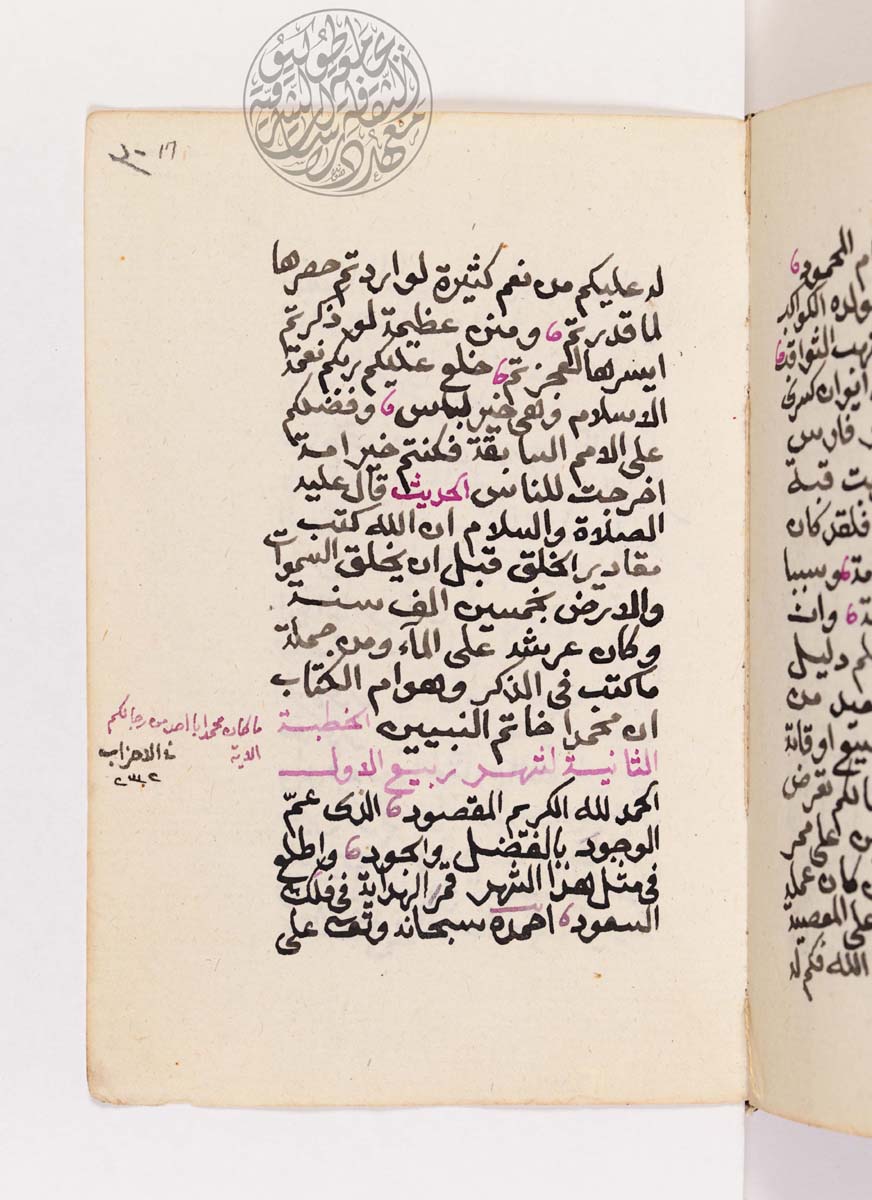 له عليكم من نعم كثيرة لو اردتم حصرها
لما قدرتم ومنن عظيمة لو ذكرتم
ايسرها لعجزتم خلع عليكم ربكم نعمة
الاسلام وهى خير لباس وفضلكم
على الامم السابقة فكنتم خير امة
اخرجت للناس الحديث قال عليه
الصلاة والسلام ان الله كتب
مقادير الخلق قبل ان يخلق السموات
والارض بخمسين الف سنة
وكان عرشه على المآء ومن جملة
ما كتب فى الذكر وهو ام الكتاب
ان محمدا خاتم النبيين الخطبة
الثانية لشهر ربيع الاول
الحمد لله الكريم المقصود الذى عمّ
الوجود بالفضل والجود واطلع
فى مثل هذا الشهر قمر الهداية فى فلك
السعود احمده سبحانه وتع على
ما كان محمد ابا احد من رجالكم
الاية
الاحزاب